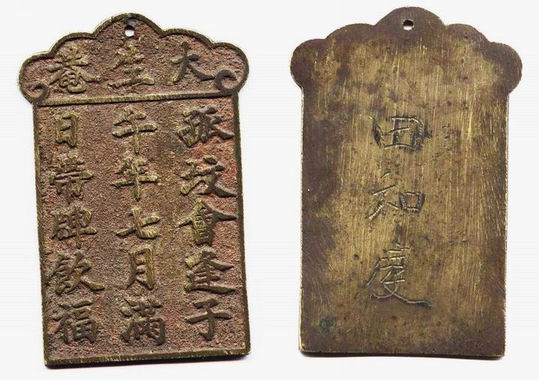 大生菴
孤坟會逢子
午年七月滿
日帶牌飲福
田和度